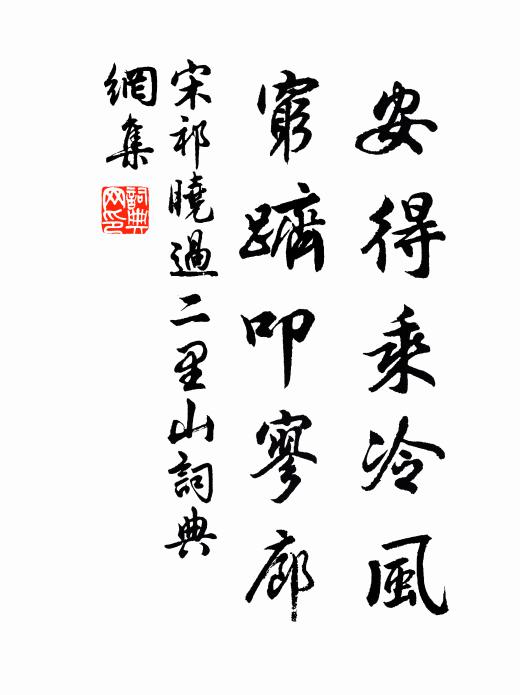 安得乘冷風
窮躋叩寥廊
宋祁曉過二里山詞典
網集
詞典網印